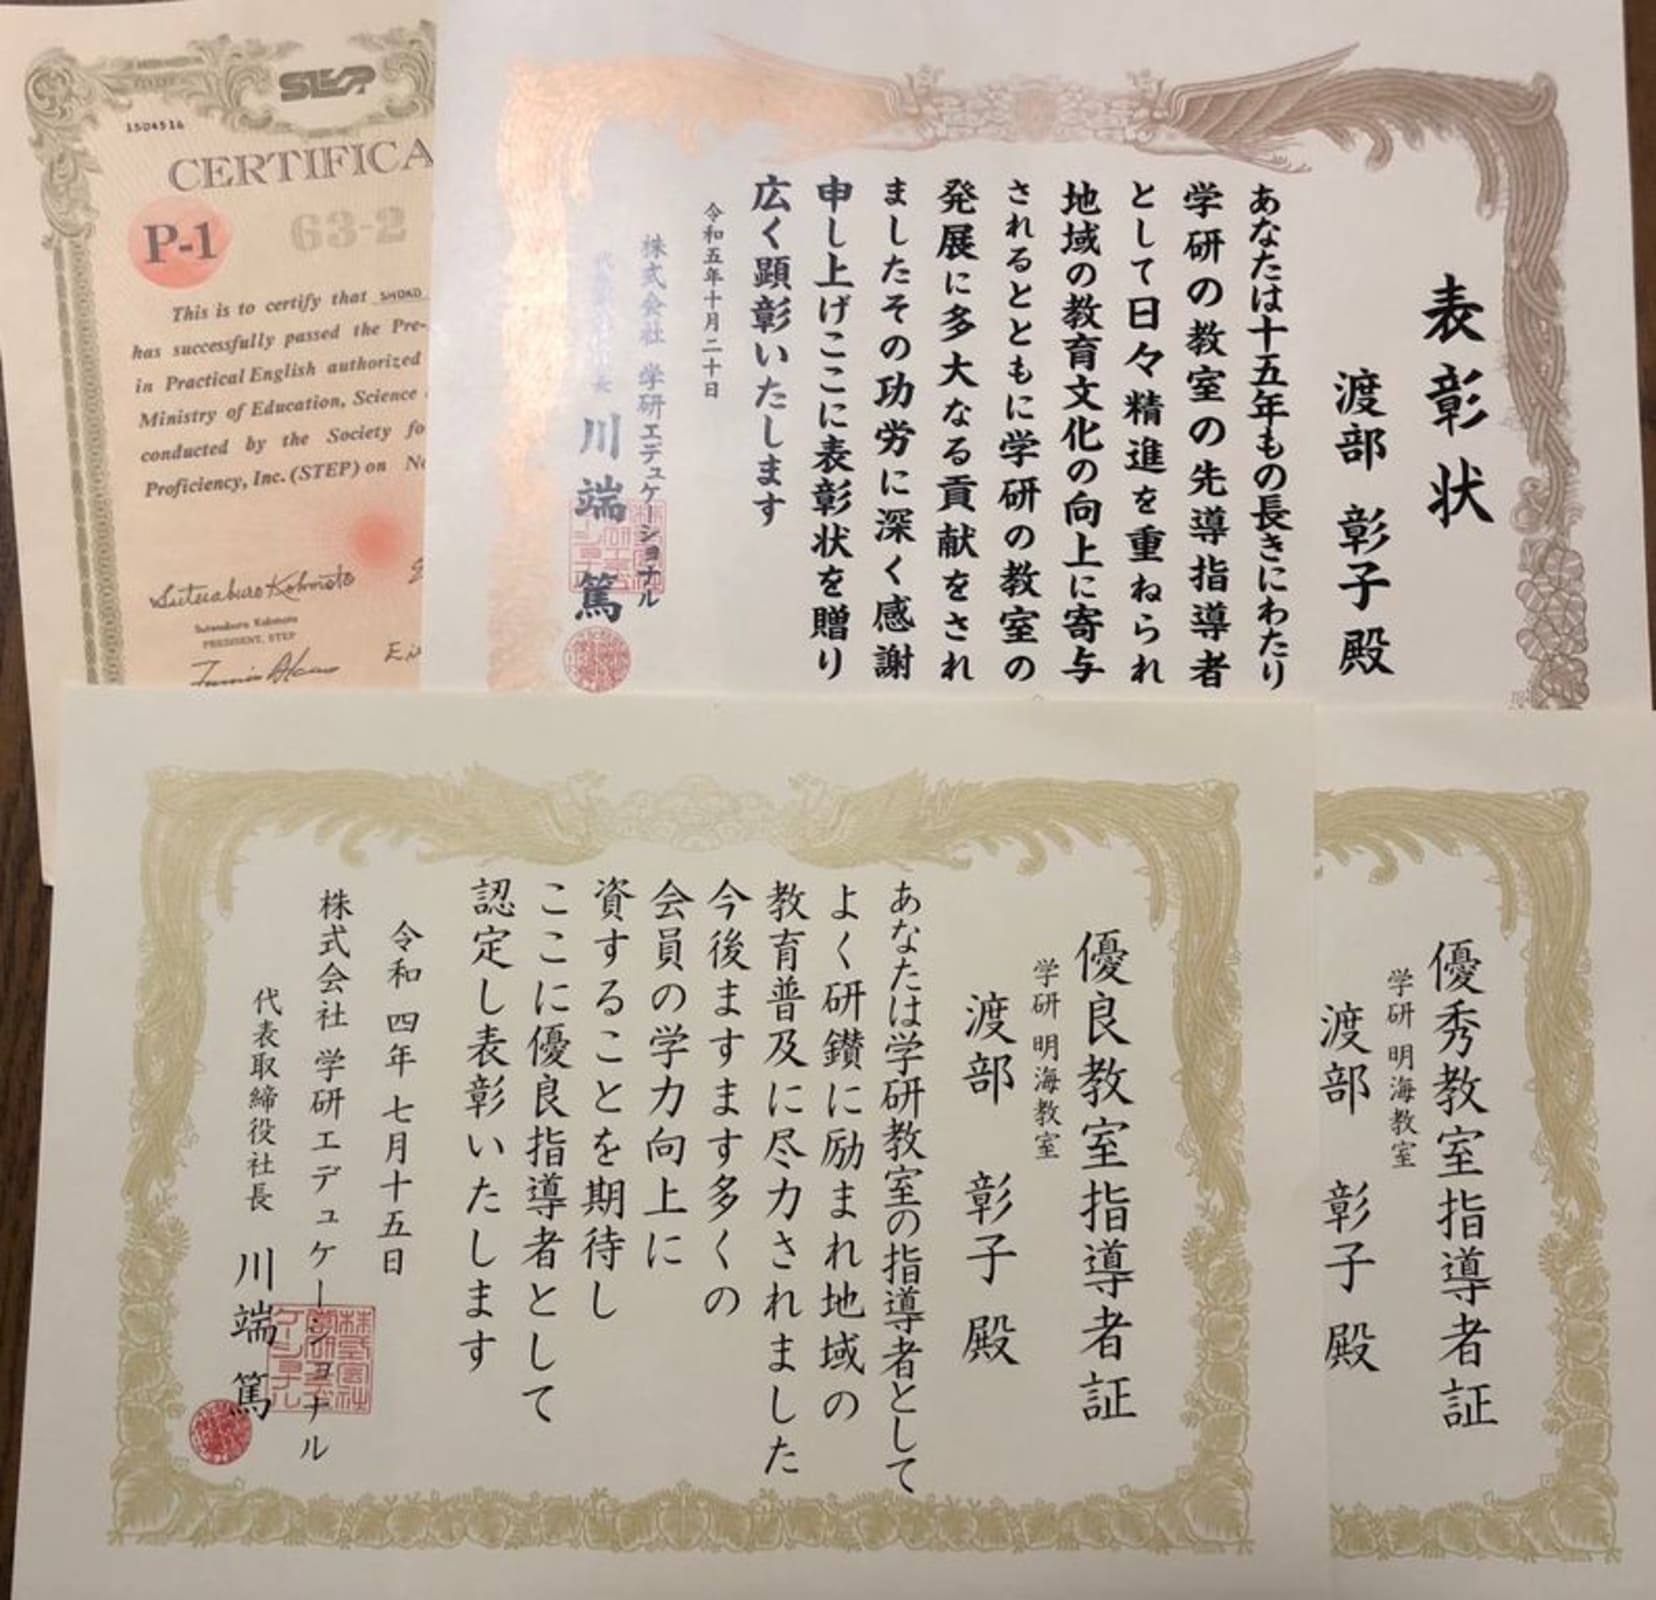 STEP
1504516
CERTIFICA
P-1
63-2
This is to certify that SHOKO
has successfully passed the Pre-
in Practical English authorized
Ministry of Education, Science
conducted by the Society fo
Proficiency, Inc. (STEP) on
Sutesaburo Kohmoto
PRESIDENT, STEP
表彰状
渡部 彰子 殿
あなたは十五年もの長きにわたり
学研の教室の先導指導者
として日々精進を重ねられ
地域の教育文化の向上に寄与
されるとともに学研の教室の
発展に多大なる貢献をされ
ましたその功労に深く感謝
申し上げここに表彰状を贈り
広く顕彰いたします
令和五年十月二十日
株式会社 学研エデュケーショナル
川端 篤
優良教室指導者証
学研 明海教室
渡部 彰子 殿
あなたは学研教室の指導者として
よく研鑽に励まれ地域の
教育普及に尽力されました
今後ますます多くの
会員の学力向上に
資することを期待し
ここに優良指導者として
認定し表彰いたします
令和 四年 七月十五日
株式会社 学研エデュケーショナル
代表取締役社長 川端 篤
優秀教室指導者証
学研 明海教室
渡部 彰子 殿